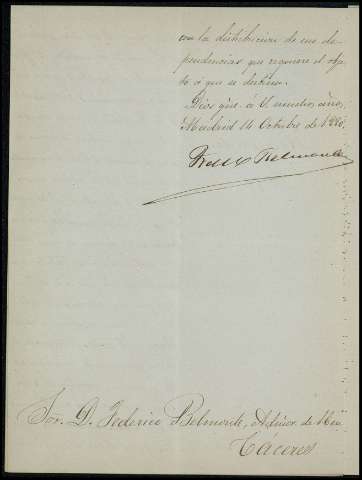 con la distribucion de sus de-
pendencias que requiere el obje-
to á que se destina.
Dios gúe. á V. muchos años.
Madrid 14 Octubre de 1880.
Belmonte
Sor. D. Federico Belmonte, Admor. de
Cáceres